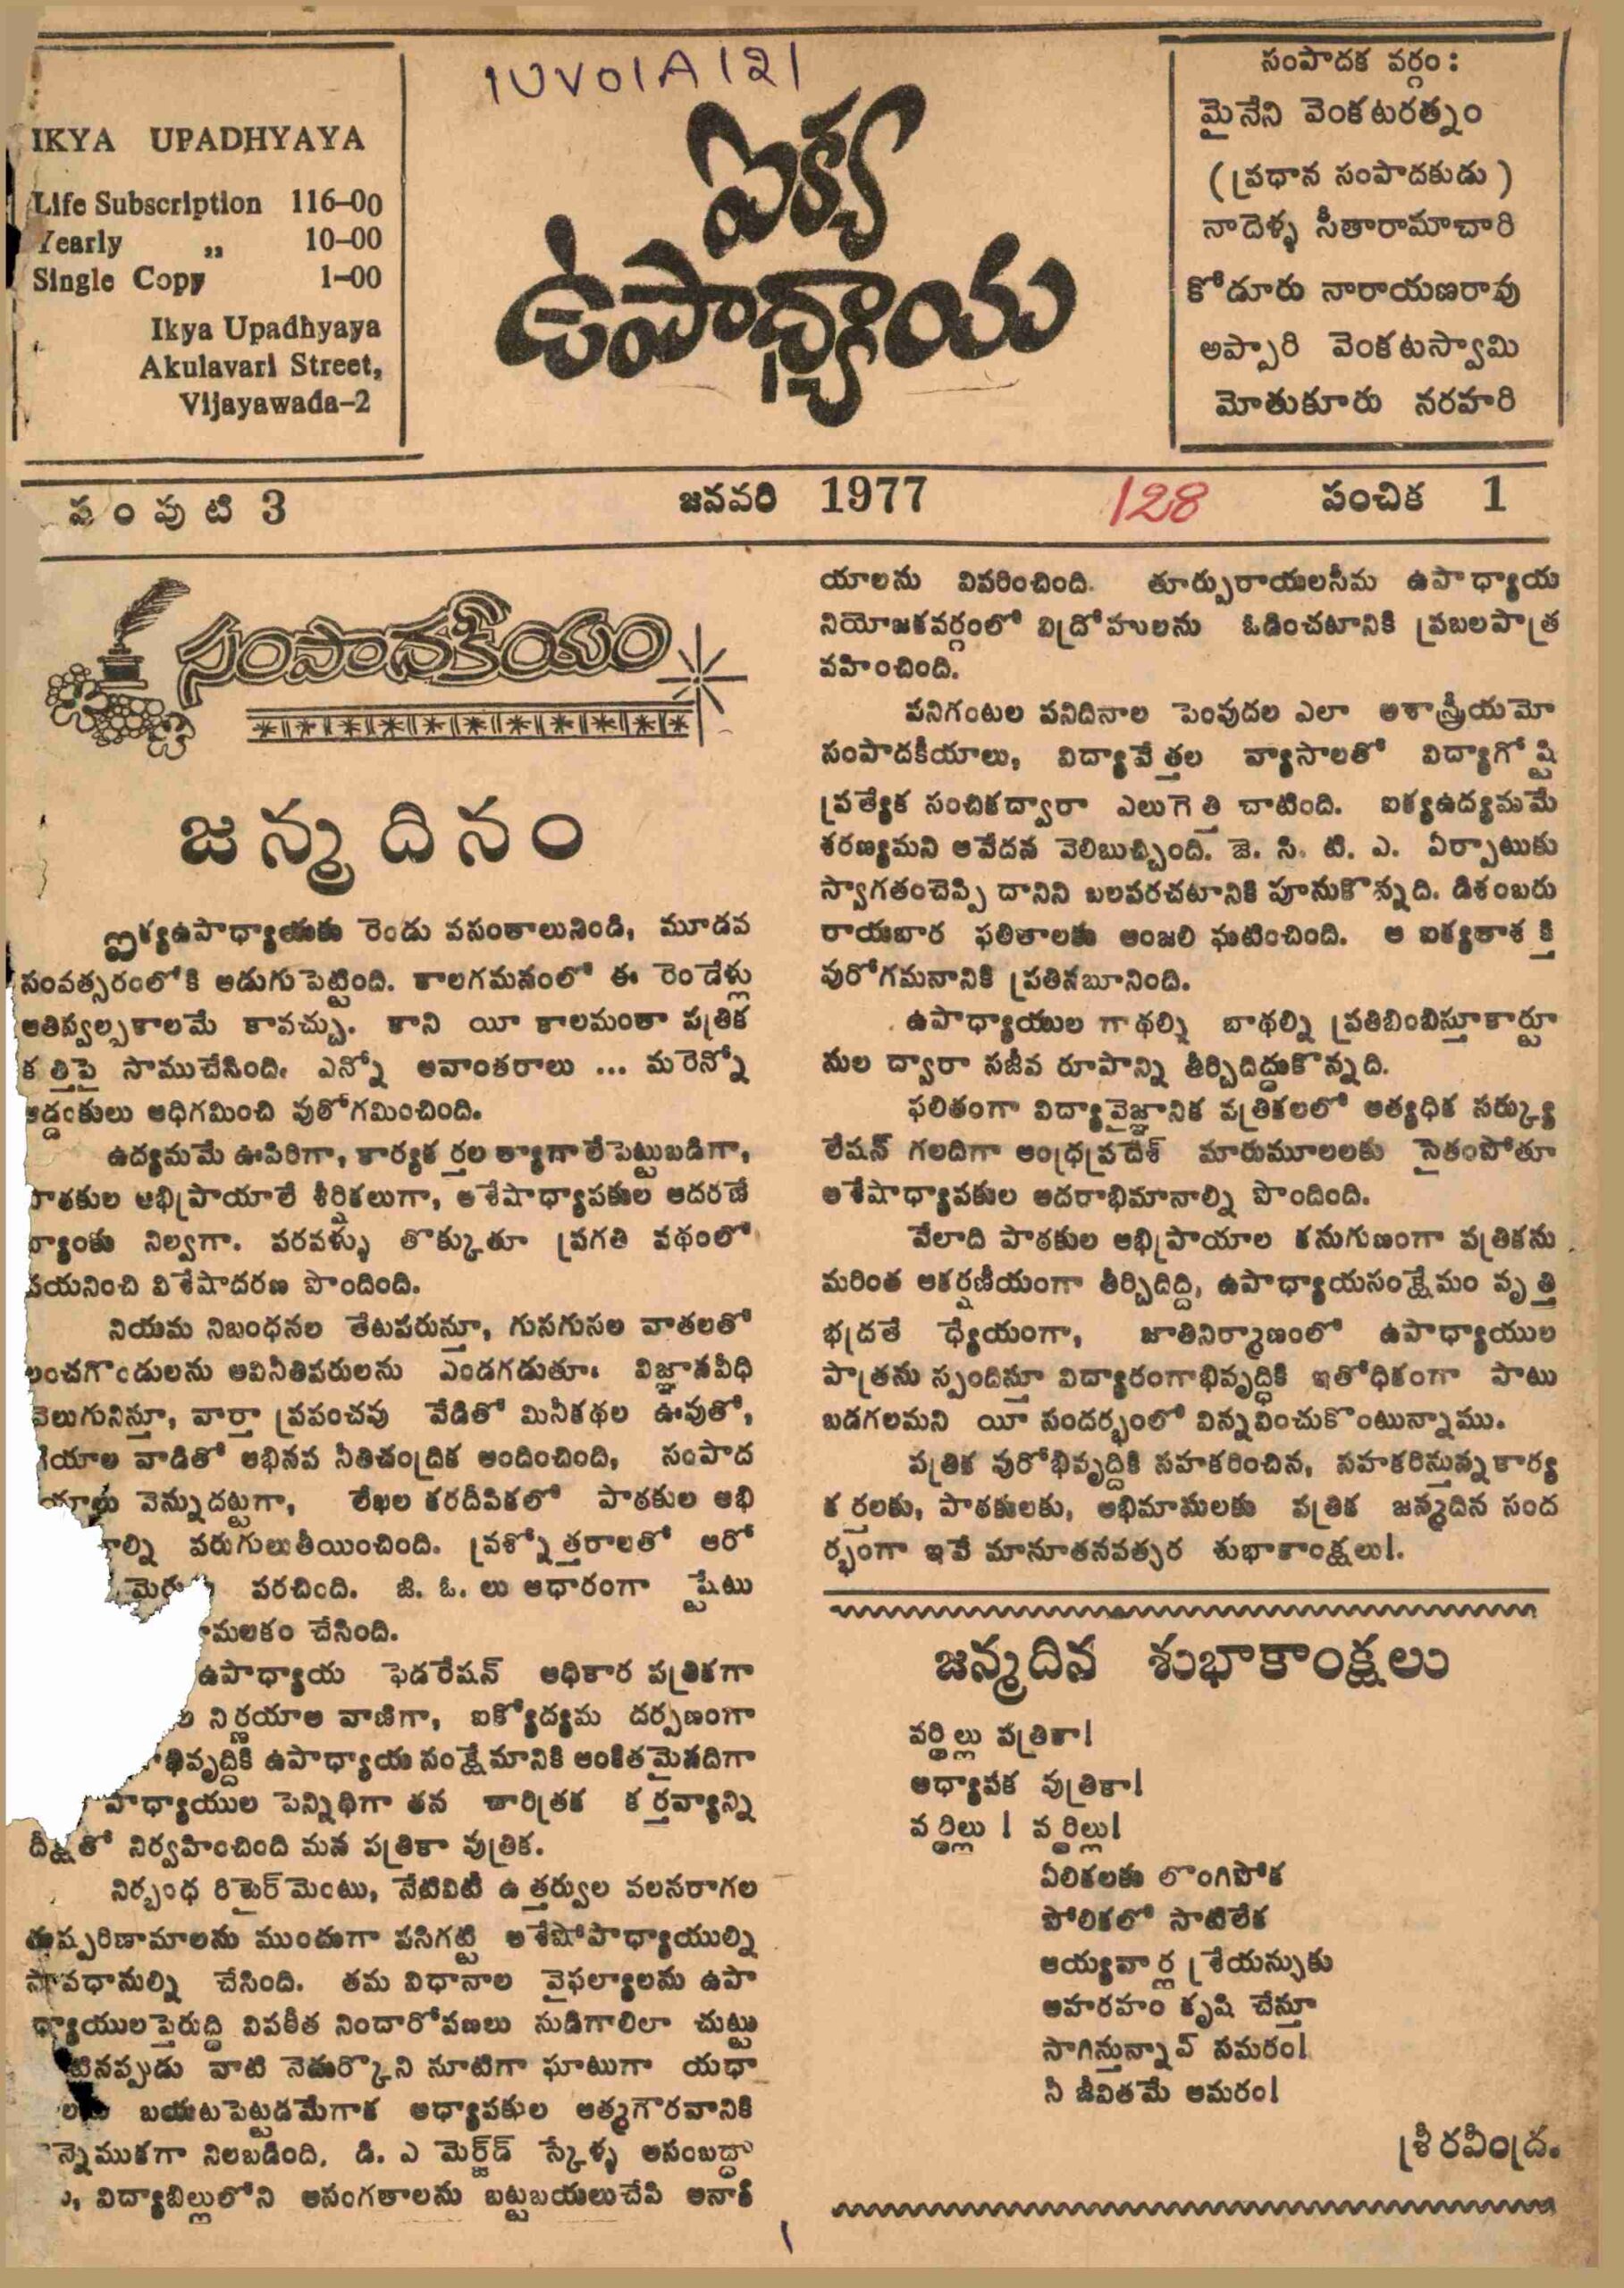 1UV01A121
IKYA UPADHYAYA
Life Subscription 116-00
Yearly ,, 10-00
Single Copy 1-00
Ikya Upadhyaya
Akulavari Street,
Vijayawada-2
ఐక్య
ఉపాధ్యాయ
సంపాదక వర్గం :
మైనేని వెంకటరత్నం
( ప్రధాన సంపాదకుడు )
నాదెళ్ళ సీతారామాచారి
కోడూరు నారాయణరావు
అప్పారి వెంకటస్వామి
మోతుకూరు నరహరి
సంపుటి 3
జనవరి 1977
128
సంచిక 1
సంపాదకీయం
జన్మదినం
ఐక్యఉపాధ్యాయకు రెండు వసంతాలునిండి, మూడవ
సంవత్సరంలోకి అడుగుపెట్టింది. కాలగమనంలో ఈ రెండేళ్లు
అతిస్వల్పకాలమే కావచ్చు. కాని యీ కాలమంతా పత్రిక
కత్తిపై సాముచేసింది. ఎన్నో అవాంతరాలు ... మరెన్నో
అడ్డంకులు అధిగమించి పురోగమించింది.
ఉద్యమమే ఊపిరిగా, కార్యకర్తల త్యాగాలే పెట్టుబడిగా,
పాఠకుల అభిప్రాయాలే శీర్షికలుగా, అశేషాధ్యాపకుల ఆదరణే
బ్యాంకు నిల్వగా. పరవళ్ళు తొక్కుతూ ప్రగతి పథంలో
పయనించి విశేషాదరణ పొందింది.
నియమ నిబంధనల తేటపరుస్తూ, గుసగుసల వాతలతో
లంచగొండులను అవినీతిపరులను ఎండగడుతూ. విజ్ఞానవీధి
వెలుగునిస్తూ, వార్తా ప్రపంచపు వేడితో మినీకథల ఊపుతో,
గేయాల వాడితో అభినవ నీతిచంద్రిక అందించింది, సంపాద
వెన్నుదట్టుగా, లేఖల కరదీపికలో పాఠకుల అభి
పరుగులుతీయించింది. ప్రశ్నోత్తరాలతో ఆరో
పరచింది. జి. ఓ. లు ఆధారంగా స్టేటు
మలకం చేసింది.
ఉపాధ్యాయ ఫెడరేషన్ అధికార పత్రికగా
నిర్ణయాల వాణిగా, ఐక్యోద్యమ దర్పణంగా
భివృద్ధికి ఉపాధ్యాయ సంక్షేమానికి అంకితమైనదిగా
పాధ్యాయుల పెన్నిథిగా తన చారిత్రక కర్తవ్యాన్ని
దీక్షతో నిర్వహించింది మన పత్రికా పుత్రిక.
నిర్బంధ రిటైర్‌మెంటు, నేటివిటీ ఉత్తర్వుల వలనరాగల
దుష్పరిణామాలను ముందుగా పసిగట్టి అశేషోపాధ్యాయుల్ని
సావధానుల్ని చేసింది. తమ విధానాల వైఫల్యాలను ఉపా
ధ్యాయులపైరుద్ది విపరీత నిందారోపణలు సుడిగాలిలా చుట్టు
టినప్పుడు వాటి నెదుర్కొని సూటిగా ఘాటుగా యధా
బయటపెట్టడమేగాక అధ్యాపకుల ఆత్మగౌరవానికి
న్నెముకగా నిలబడింది. డి. ఎ మెర్జ్‌డ్ స్కేళ్ళ అసంబద్ధా
, విద్యాబిల్లులోని అసంగతాలను బట్టబయలుచేసి అనాక
యాలను వివరించింది. తూర్పురాయలసీమ ఉపాధ్యాయ
నియోజకవర్గంలో విద్రోహులను ఓడించటానికి ప్రబలపాత్ర
వహించింది.
పనిగంటల పనిదినాల పెంపుదల ఎలా అశాస్త్రీయమో
సంపాదకీయాలు, విద్యావేత్తల వ్యాసాలతో విద్యాగోష్టి
ప్రత్యేక సంచికద్వారా ఎలుగెత్తి చాటింది. ఐక్యఉద్యమమే
శరణ్యమని ఆవేదన వెలిబుచ్చింది. జె. సి. టి. ఎ. ఏర్పాటుకు
స్వాగతంచెప్పి దానిని బలపరచటానికి పూనుకొన్నది. డిశంబరు
రాయబార ఫలితాలకు అంజలి ఘటించింది. ఆ ఐక్యతాశక్తి
పురోగమనానికి ప్రతినబూనింది.
ఉపాధ్యాయుల గాథల్ని బాథల్ని ప్రతిబింబిస్తూకార్టూ
నుల ద్వారా సజీవ రూపాన్ని తీర్చిదిద్దుకొన్నది.
ఫలితంగా విద్యావైజ్ఞానిక పత్రికలలో అత్యధిక సర్క్యు
లేషన్ గలదిగా ఆంధ్రప్రదేశ్ మారుమూలలకు సైతంపోతూ
అశేషాధ్యాపకుల ఆదరాభిమానాల్ని పొందింది.
వేలాది పాఠకుల అభిప్రాయాల కనుగుణంగా పత్రికను
మరింత ఆకర్షణీయంగా తీర్చిదిద్ది, ఉపాధ్యాయసంక్షేమం వృత్తి
భద్రతే ధ్యేయంగా, జాతినిర్మాణంలో ఉపాధ్యాయుల
పాత్రను స్పందిస్తూ విద్యారంగాభివృద్ధికి ఇతోధికంగా పాటు
బడగలమని యీ సందర్భంలో విన్నవించుకొంటున్నాము.
పత్రిక పురోభివృద్ధికి సహకరించిన, సహకరిస్తున్నకార్య
కర్తలకు, పాఠకులకు, అభిమానులకు పత్రిక జన్మదిన సంద
ర్భంగా ఇవే మానూతనవత్సర శుభాకాంక్షలు!.
జన్మదిన శుభాకాంక్షలు
వర్థిల్లు పత్రికా!
అధ్యాపక పుత్రికా!
వర్థిల్లు ! వర్థిల్లు!
ఏలికలకు లొంగిపోక
పోలికలో సాటిలేక
అయ్యవార్ల శ్రేయస్సుకు
అహరహం కృషి చేస్తూ
సాగిస్తున్నావ్ సమరం!
నీ జీవితమే అమరం!
శ్రీరవీంద్ర.